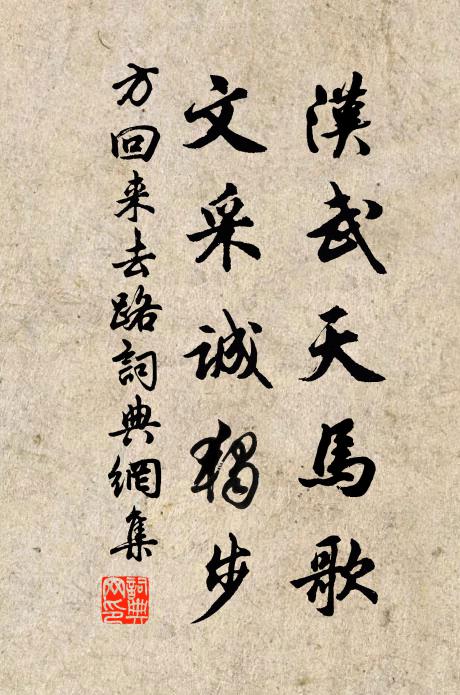 漢武天馬歌
文采誠獨步
方回来去路詞典網集
詞典網印